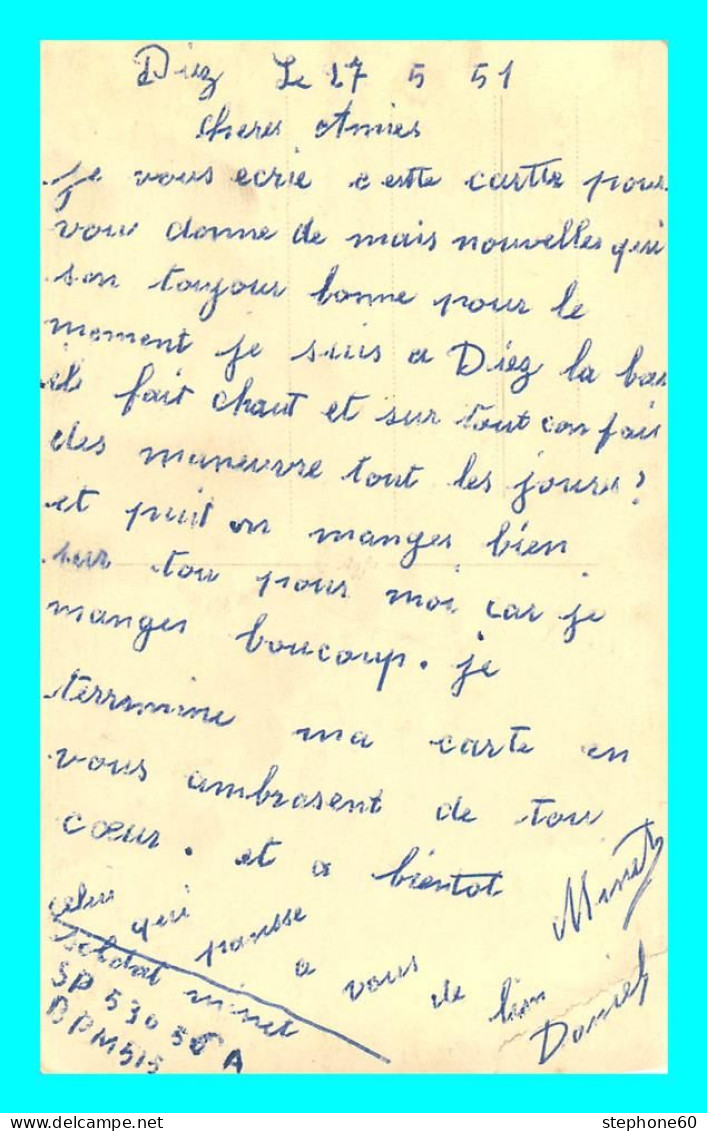 Diez Le 27 5 51
cheres Amies
je vous ecrie cestte cartte pour
vour donne de mais nouvelles qui
son toujour bonne pour le
moment je suis a Diez la bas
il fait chaut et sur tout con fais
des maneuvre tout les jours?
et puit on manges bien
sur tou pour moi car je
manges boucoup. je
terrmine ma carte en
vous ambrasent de tou
cœur. et a bientot
celui qui pansse a vous de loin
Minet
Daniel
soldat minet
SP 53056 A
BPM515
stephone60